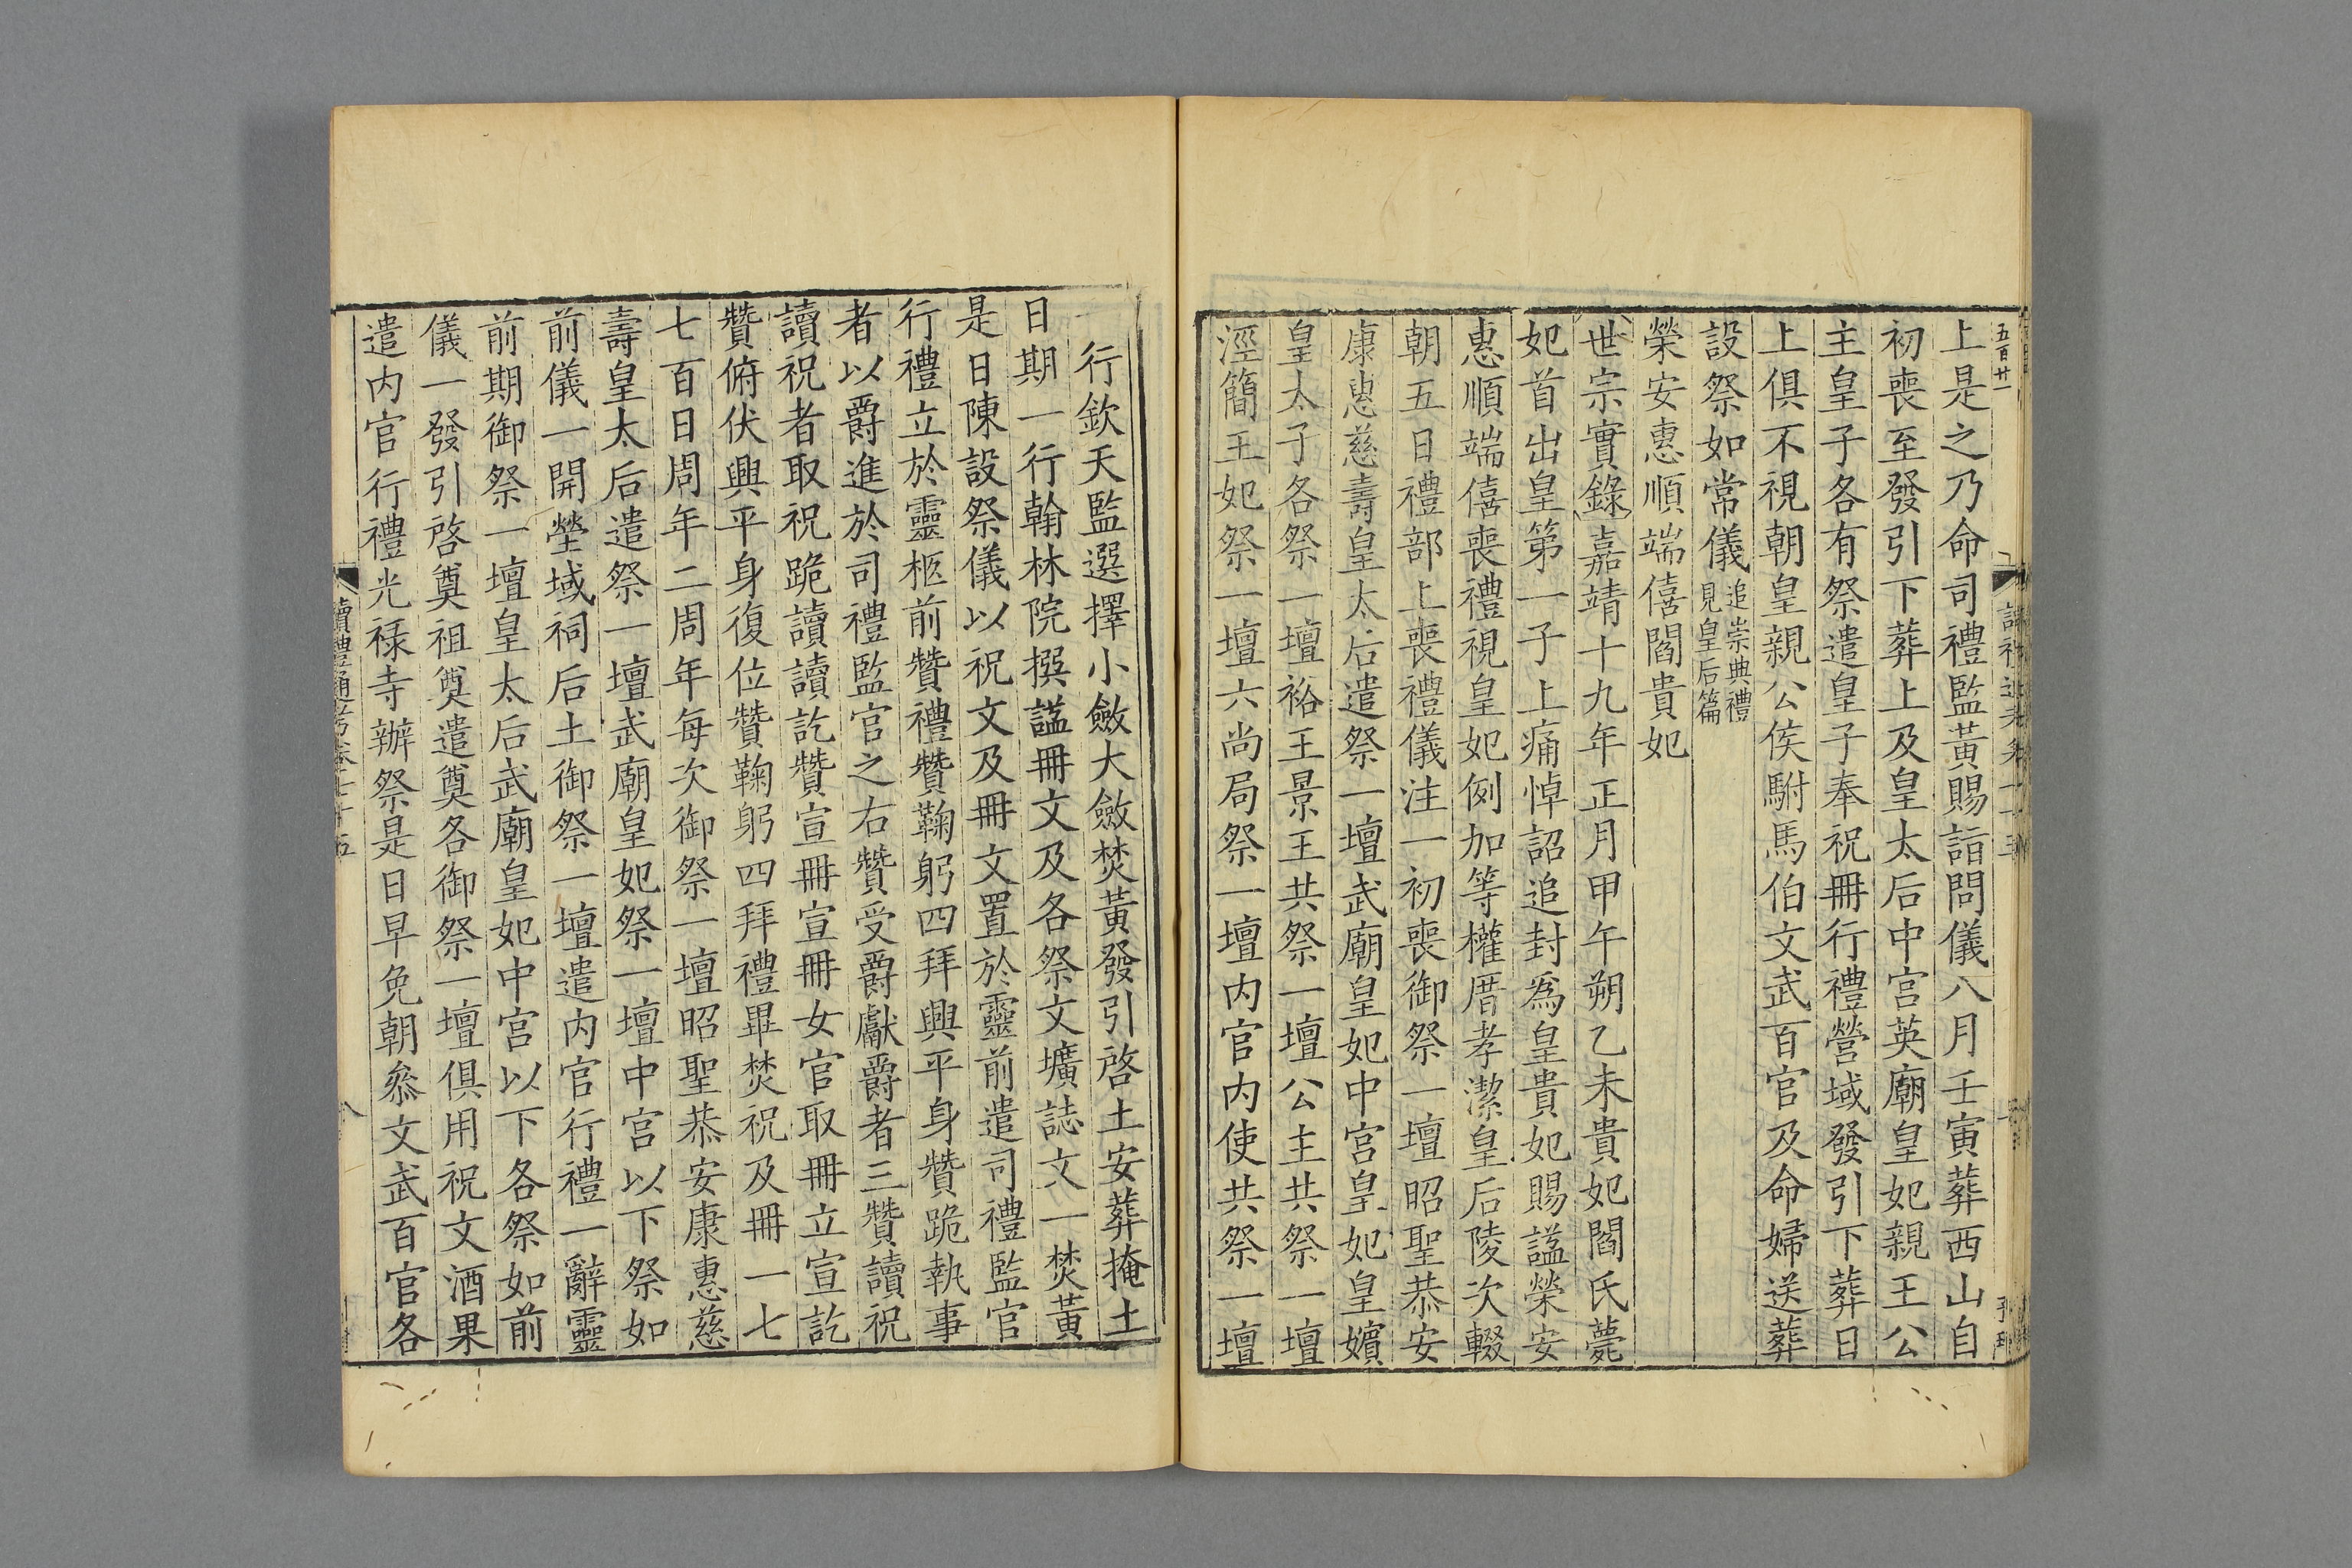 五百廿一
上是之乃命司禮監黃賜詣問儀八月壬寅葬西山自
初喪至發引下葬上及皇太后中宮英廟皇妃親王公
主皇子各有祭遣皇子奉祝冊行禮營域發引下葬日
上俱不視朝皇親公侯駙馬伯文武百官及命婦送葬
設祭如常儀追崇典禮見皇后篇
榮安惠順端僖閻貴妃
世宗實錄嘉靖十九年正月甲午朔乙未貴妃閻氏薨
妃首出皇第一子上痛悼詔追封爲皇貴妃賜謚榮安
惠順端僖喪禮視皇妃例加等權厝孝潔皇后陵次輟
朝五日禮部上喪禮儀注一初喪御祭一壇昭聖恭安
康惠慈壽皇太后遣祭一壇武廟皇妃中宮皇妃皇嬪
皇太子各祭一壇裕王景王共祭一壇公主共祭一壇
涇簡王妃祭一壇六尚局祭一壇內官內使共祭一壇
一行欽天監選擇小斂大斂焚黃發引啓土安葬掩土
日期一行翰林院撰謚冊文及各祭文壙誌文一焚黃
是日陳設祭儀以祝文及冊文置於靈前遣司禮監官
行禮立於靈柩前贊禮贊鞠躬四拜興平身贊跪執事
者以爵進於司禮監官之右贊受爵獻爵者三贊讀祝
讀祝者取祝跪讀讀訖贊宣冊宣冊女官取冊立宣訖
贊俯伏興平身復位贊鞠躬四拜禮畢焚祝及冊一七
七百日周年二周年每次御祭一壇昭聖恭安康惠慈
壽皇太后遣祭一壇武廟皇妃祭一壇中宮以下祭如
前儀一開塋域祠后土御祭一壇遣內官行禮一辭靈
前期御祭一壇皇太后武廟皇妃中宮以下各祭如前
儀一發引啓奠祖奠遣奠各御祭一壇俱用祝文酒果
遣內官行禮光祿寺辦祭是日早免朝叅文武百官各
讀禮通考卷七十五
八